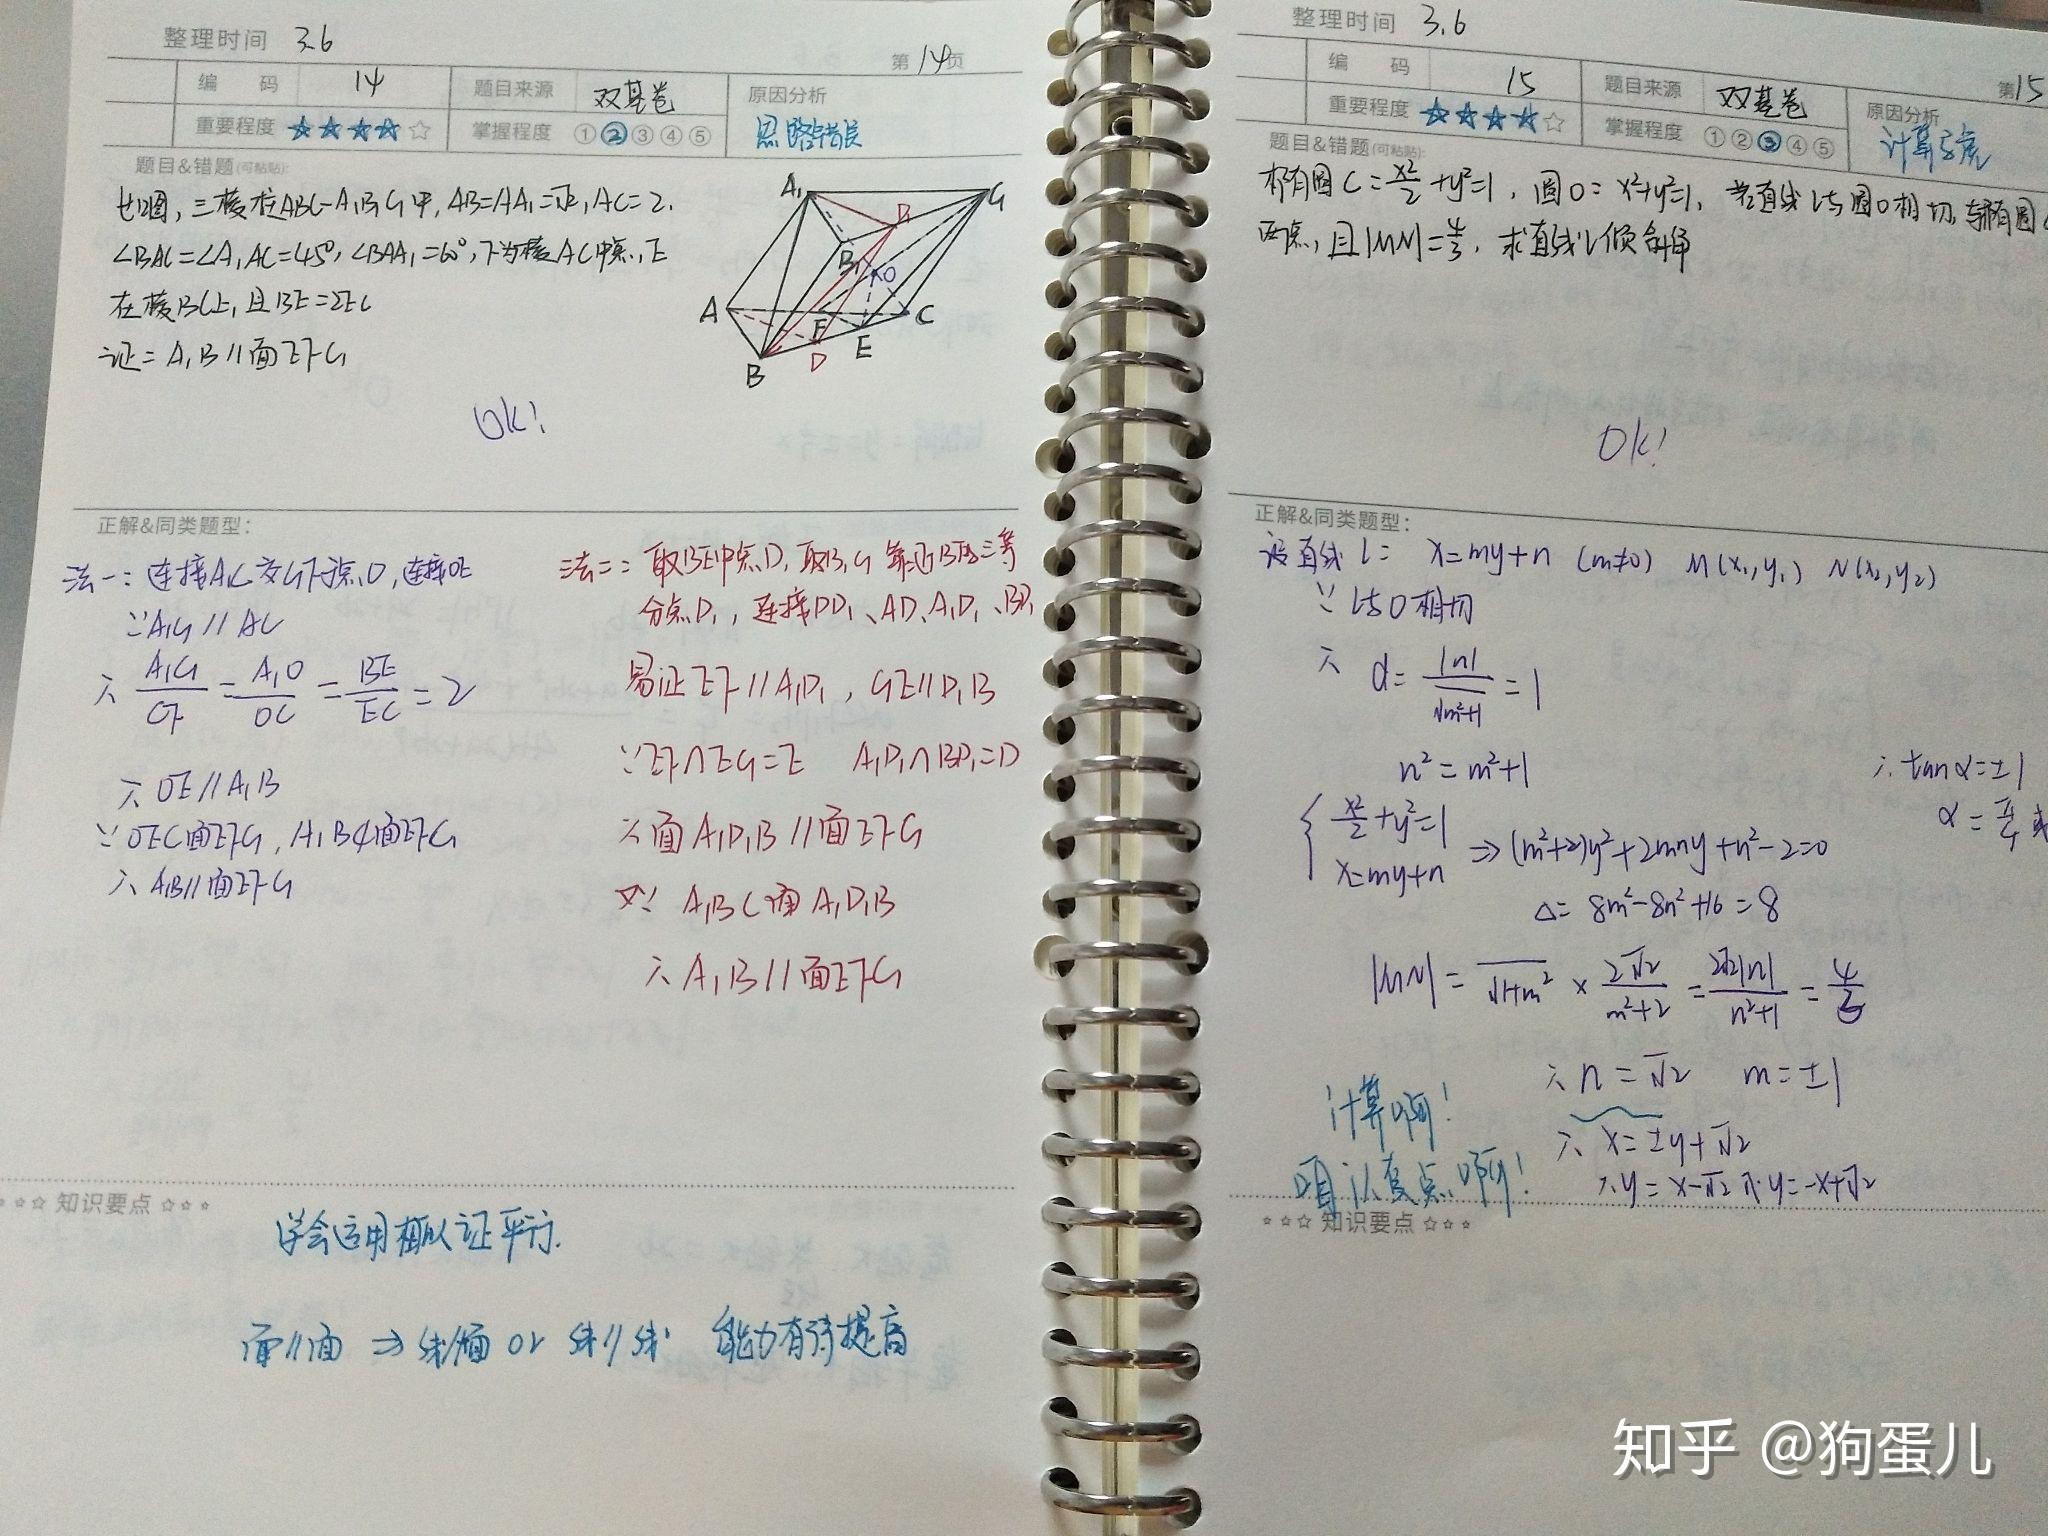 整理时间 3.6
第14页
编 码 14 题目来源 双基卷 原因分析
重要程度 ★★★★☆ 掌握程度 ①②③④⑤ 思路错误
题目&错题(可粘贴):
如图,三棱柱ABC-A₁B₁C₁中,AB=AA₁=√2,AC=2.
∠BAC=∠A₁AC=45°,∠BAA₁=60°,F为棱AC中点,E
在棱BC上,且BE=2EC
证:A₁B//面EFC₁
A₁ C₁ D₁ B₁ O A F C B D E
OK!
正解&同类题型:
法一:连接A₁C交C₁F于点O,连接OE
∵A₁C₁//AC
∴ A₁C₁/CF = A₁O/OC = BE/EC = 2
∴ OE//A₁B
∵ OE⊂面EFC₁, A₁B⊄面EFC₁
∴ A₁B//面EFC₁
法二:取BE中点D,取B₁C₁靠近B₁的三等
分点D₁,连接DD₁、AD、A₁D₁、BD₁
易证EF//A₁D₁,C₁E//D₁B
∵EF∩EC₁=E A₁D₁∩BD₁=D
∴面A₁D₁B//面EFC₁
又∵ A₁B⊂面A₁D₁B
∴ A₁B//面EFC₁
☆☆☆ 知识要点 ☆☆☆
学会运用相似证平行.
面//面 ⇒ 线//面 or 线//线 能力有待提高
整理时间 3.6
第15
编 码 15 题目来源 双基卷 原因分析
重要程度 ★★★★☆ 掌握程度 ①②③④⑤ 计算
题目&错题(可粘贴):
椭圆C:x²/2+y²=1,圆O:x²+y²=1,若直线l与圆O相切,与椭圆C
两点,且|MN|=4/3,求直线l倾斜角
OK!
正解&同类题型:
设直线l: x=my+n (m≠0) M(x₁,y₁) N(x₂,y₂)
∵ l与O相切
∴ d=|n|/√m²+1=1
n²=m²+1
{ x²/2+y²=1
x=my+n ⇒(m²+2)y²+2mny+n²-2=0
△=8m²-8n²+16=8
|MN|=√1+m² × 2√2/m²+2 = 2√2|n|/n²+1 = 4/3
∴ n=√2 m=±1
∴ x=±y+√2
∴y=x-√2 或 y=-x+√2
∴ tanα=±1
α=π/4 或
计算啊!
咱认真点啊!
☆☆☆ 知识要点 ☆☆☆
知乎 @狗蛋儿